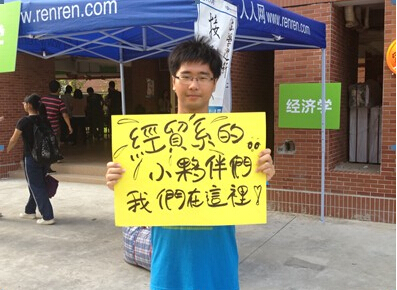 www.renren.com
人人网 www.renren.com
经济学
經貿系的..
小夥伴們
我們在這裡